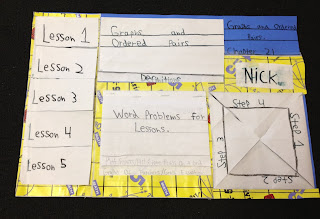 Lesson 1
Lesson 2
Lesson 3
Lesson 4
Lesson 5
Graphs and
Ordered Pairs
Definitions
Word Problems for
Lessons.
Graphs and Ordered
Pairs
Chapter 21
Nick
Step 4
Step 1
Step 2
Step 3